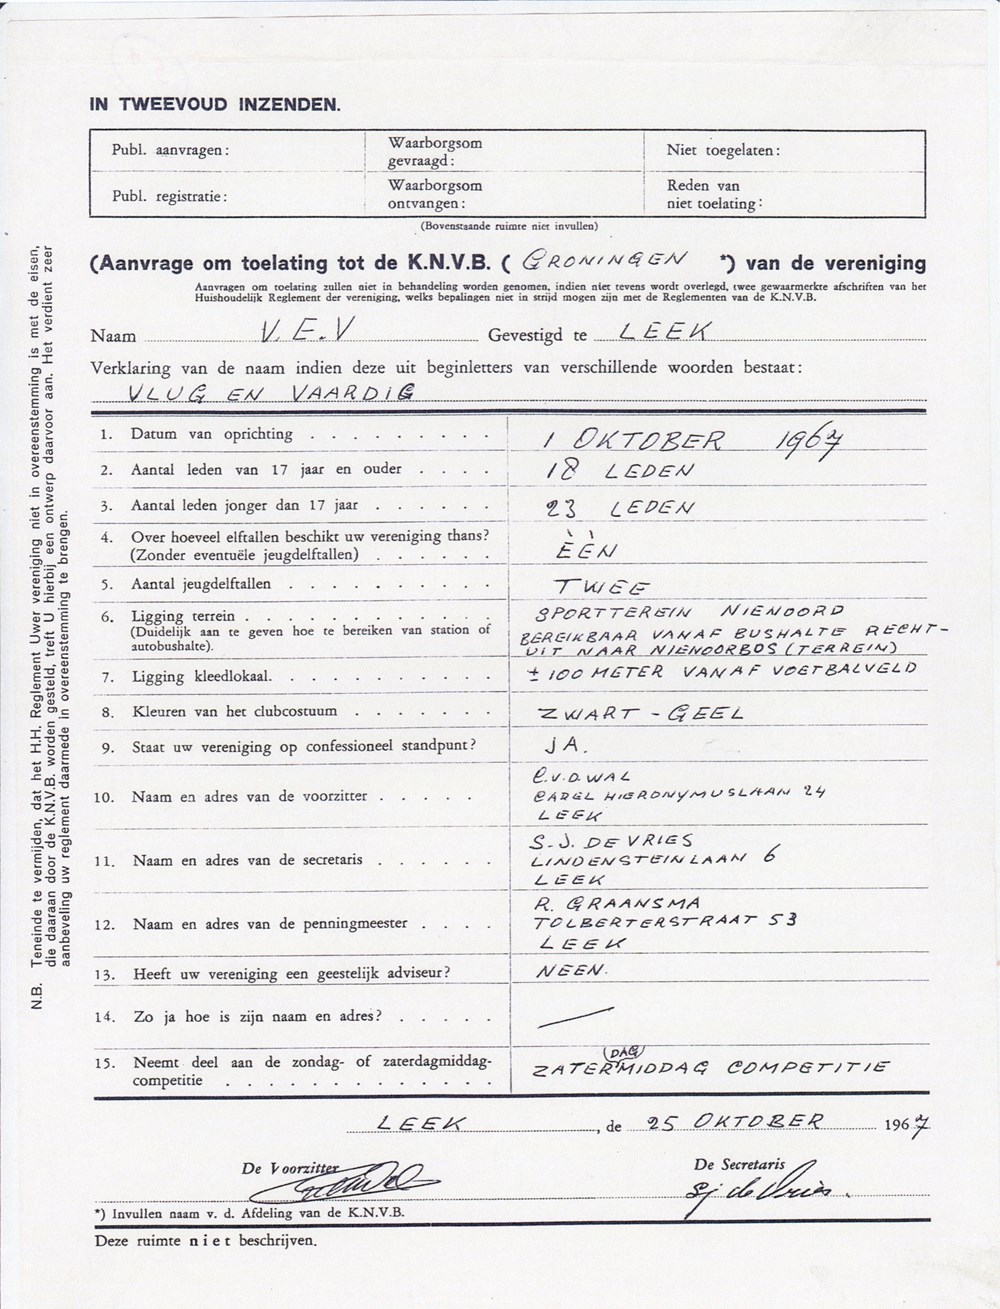 IN TWEEVOUD INZENDEN.
Publ. aanvragen:
Waarborgsom
gevraagd:
Niet toegelaten:
Publ. registratie:
Waarborgsom
ontvangen:
Reden van
niet toelating:
(Bovenstaande ruimte niet invullen)
(Aanvrage om toelating tot de K.N.V.B. ( GRONINGEN *) van de vereniging
Aanvragen om toelating zullen niet in behandeling worden genomen, indien niet tevens wordt overlegd, twee gewaarmerkte afschriften van het
Huishoudelijk Reglement der vereniging, welks bepalingen niet in strijd mogen zijn met de Reglementen van de K.N.V.B.
Naam V.E.V Gevestigd te LEEK
Verklaring van de naam indien deze uit beginletters van verschillende woorden bestaat:
VLUG EN VAARDIG
1. Datum van oprichting . . . . . . . . . 1 OKTOBER 1967
2. Aantal leden van 17 jaar en ouder . . . . 18 LEDEN
3. Aantal leden jonger dan 17 jaar . . . . . . 23 LEDEN
4. Over hoeveel elftallen beschikt uw vereniging thans?
(Zonder eventuële jeugdelftallen) . . . . . . ÈÈN
5. Aantal jeugdelftallen . . . . . . . . . . TWEE
6. Ligging terrein . . . . . . . . . . . .
(Duidelijk aan te geven hoe te bereiken van station of
autobushalte).
SPORTTEREIN NIENOORD
BEREIKBAAR VANAF BUSHALTE RECHT-
UIT NAAR NIENOORBOS (TERREIN)
7. Ligging kleedlokaal. . . . . . . . . . . ± 100 METER VANAF VOETBALVELD
8. Kleuren van het clubcostuum . . . . . . . ZWART - GEEL
9. Staat uw vereniging op confessioneel standpunt? JA.
10. Naam en adres van de voorzitter . . . . .
C.V.D. WAL
CAREL HIERONYMUSLAAN 24
LEEK
11. Naam en adres van de secretaris . . . . . .
S.J. DE VRIES
LINDENSTEINLAAN 6
LEEK
12. Naam en adres van de penningmeester . . . .
R. GRAANSMA
TOLBERTERSTRAAT 53
LEEK
13. Heeft uw vereniging een geestelijk adviseur? NEEN.
14. Zo ja hoe is zijn naam en adres? . . . . . —
15. Neemt deel aan de zondag- of zaterdagmiddag-
competitie . . . . . . . . . . . . .
DAG
ZATERMIDDAG COMPETITIE
LEEK, de 25 OKTOBER 1967
De Voorzitter
De Secretaris
Sj de Vries.
*) Invullen naam v. d. Afdeling van de K.N.V.B.
Deze ruimte niet beschrijven.
N.B. Teneinde te vermijden, dat het H.H. Reglement Uwer vereniging niet in overeenstemming is met de eisen,
die daaraan door de K.N.V.B. worden gesteld, treft U hierbij een ontwerp daarvoor aan. Het verdient zeer
aanbeveling uw reglement daarmede in overeenstemming te brengen.